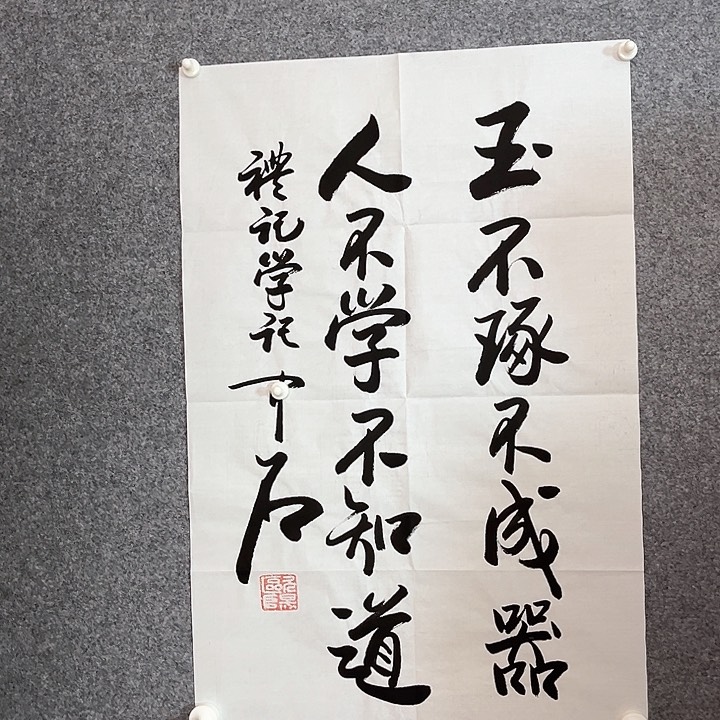 玉不琢不成器
人不学不知道
禮记学记 介石